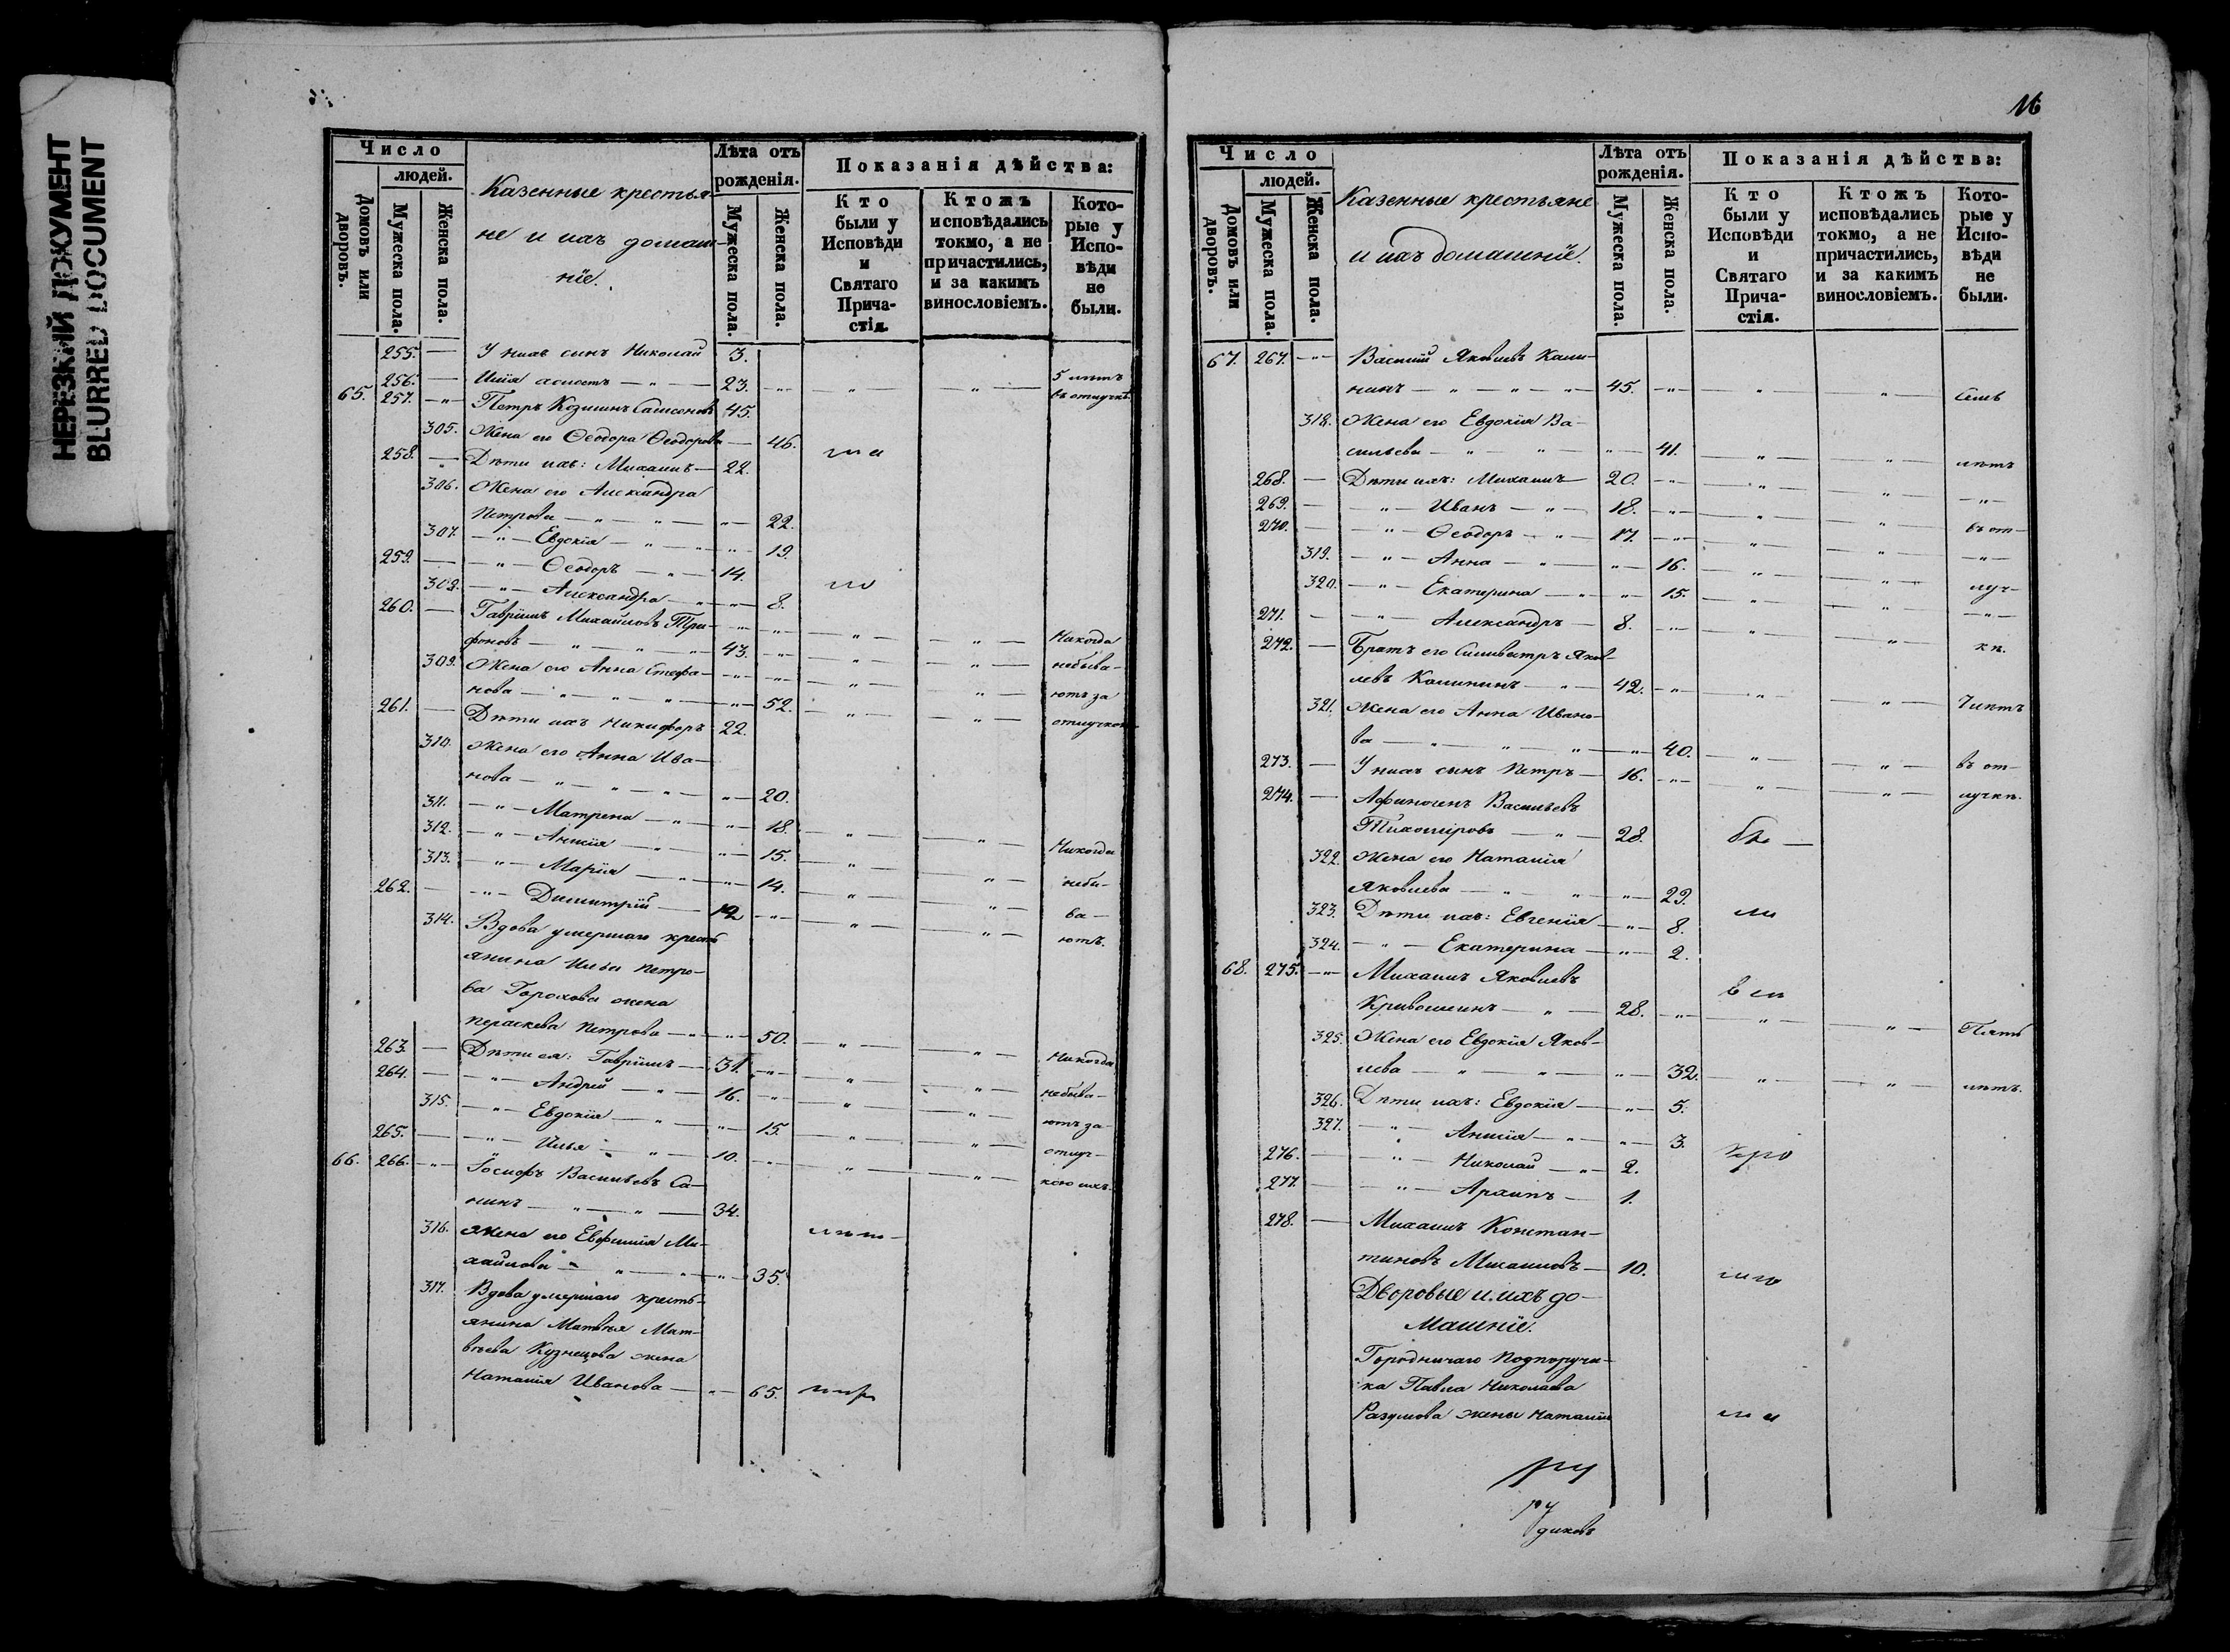 НЕРЕЗКИЙ ДОКУМЕНТ
BLURRED DOCUMENT
Число
людей.
Домовъ или дворовъ.
Мужеска пола.
Женска пола.
Казенные крестья-
не и ихъ домаш-
ніе.
Лѣта отъ
рожденія.
Мужеска пола.
Женска пола.
Показанія дѣйства:
Кто
были у
Исповѣди
и
Святаго
Прича-
стія.
Ктожъ
исповѣдались
токмо, а не
причастились,
и за какимъ
винословіемъ.
Кото-
рые у
Испо-
вѣди
не
были.
255. — У нихъ сынъ Николай 3.
256. — 23. 5 лѣтъ
65. 257. Петръ Козминъ Самсоновъ 45. въ отлучкѣ
305. Жена его Ѳеодора Ѳеодорова — 46.
258. — Дѣти ихъ: Михаилъ — 22.
306. Жена его Александра
Петрова — " — " — 22.
307. — " — Евдокія — " — 19.
259. — " — Ѳеодоръ — " — 14.
308. — " — Александра — " — 8.
260. — Гавріилъ Михайловъ Три- Никогда
фоновъ — " — 43. небыва-
309. Жена его Анна Стефа- ютъ за
нова — " — " — 52. отлучкою
261. — Дѣти ихъ Никифоръ 22.
310. Жена его Анна Ива-
нова — " — " — 20.
311. — " — Матрена — " — 18. Никогда
312. — " — Анисія — " — 15. небы-
313. — " — Марія — " — 14. ва-
262. — " — Димитрій — 12 ютъ.
314. Вдова умершаго кресть
янина Ильи Петро-
ва Горохова жена
Параскева Петрова — " — 50. Никогда
263. — Дѣти ея: Гавріилъ — 31. небыва-
264. — " — Андрей — " — 16. ютъ за
315. — " — Евдокія — " — 15. отлуч-
265. — " — Илья — " — 10. кою ихъ.
66. 266. Іосифъ Васильевъ Са-
нинъ — " — " — 34.
316. Жена его Евфимія Ми-
хайлова — " — " — 35.
317. Вдова умершаго кресть-
янина Матвѣя Мат-
вѣева Кузнецова жена
Наталія Иванова — " — 65.
16
Число
людей.
Домовъ или дворовъ.
Мужеска пола.
Женска пола.
Казенные крестьяне
и ихъ домашніе.
Лѣта отъ
рожденія.
Мужеска пола.
Женска пола.
Показанія дѣйства:
Кто
были у
Исповѣди
и
Святаго
Прича-
стія.
Ктожъ
исповѣдались
токмо, а не
причастились,
и за какимъ
винословіемъ.
Кото-
рые у
Испо-
вѣди
не
были.
67. 267. Василій Яковлевъ Кали-
нинъ — " — " — 45. Семь
318. Жена его Евдокія Ва-
сильева — " — " — 41. лѣтъ
268. — Дѣти ихъ: Михаилъ — 20. — " —
269. — " — Иванъ — " — 18. въ от-
270. — " — Ѳеодоръ — " — 17. — " —
319. — " — Анна — " — 16. луч-
320. — " — Екатерина — " — 15. — " —
271. — " — Александръ — 8. кѣ.
272. — Братъ его Сильвестръ Яков-
левъ Калининъ — " — 42. 7 лѣтъ
321. Жена его Анна Ивано-
ва — " — " — 40. въ от-
273. — У нихъ сынъ Петръ — 16. лучкѣ.
274. — Афиногенъ Васильевъ
Тихоміровъ — " — 28.
322. Жена его Наталія
Яковлева — " — " — 29.
323. Дѣти ихъ: Евгенія — " — 8.
324. — " — Екатерина — " — 2.
68. 275. Михаилъ Яковлевъ
Кривошеинъ — " — 28. Пять
325. Жена его Евдокія Яков-
лева — " — " — 32. лѣтъ.
326. Дѣти ихъ: Евдокія — " — 5.
327. — " — Анисія — " — 3.
276. — " — Николай — " — 2.
277. — " — 1.
278. — Михаилъ Констан-
тиновъ Михаиловъ — 10.
Дворовые и ихъ до-
машніе.
Городничаго Подпоручи-
ка Павла Николаева
Разумова жены Наталіи